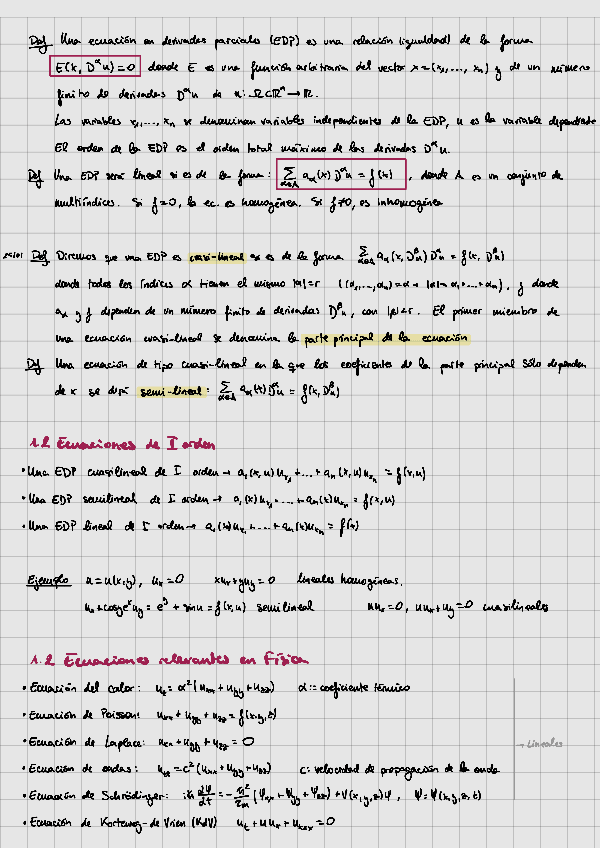 Def Una ecuación en derivadas parciales (EDP) es una relación (igualdad) de la forma
E(x, D^α u) = 0 donde E es una función arbitraria del vector x = (x₁, ..., xₙ) y de un número
finito de derivadas D^α u de u: Ω⊂ℝⁿ → ℝ.
Las variables x₁, ..., xₙ se denominan variables independientes de la EDP, u es la variable dependiente
El orden de la EDP es el orden total máximo de las derivadas D^α u.
Def Una EDP será lineal si es de la forma: ∑_{α∈A} a_α(x) D^α u = f(x), donde A es un conjunto de
multiíndices. Si f=0, la ec. es homogénea. Si f≠0, es inhomogénea
Def Diremos que una EDP es cuasi-lineal si es de la forma ∑_{α∈A} a_α(x, D^β u) D^α u = f(x, D^β u)
donde todos los índices α tienen el mismo |α|=r ((α₁, ..., αₙ) = α → |α| = α₁ + ... + αₙ), y donde
a_α y f dependen de un número finito de derivadas D^β u, con |β|<r. El primer miembro de
una ecuación cuasi-lineal se denomina la parte principal de la ecuación
Def Una ecuación de tipo cuasi-lineal en la que los coeficientes de la parte principal sólo dependen
de x se dirá semi-lineal: ∑_{α∈A} a_α(x) D^α u = f(x, D^β u)
1.2 Ecuaciones de I orden
• Una EDP cuasilineal de I orden → a₁(x,u)u_{x₁} + ... + aₙ(x,u)u_{xₙ} = f(x,u)
• Una EDP semilineal de I orden → a₁(x)u_{x₁} + ... + aₙ(x)u_{xₙ} = f(x,u)
• Una EDP lineal de I orden → a₁(x)u_{x₁} + ... + aₙ(x)u_{xₙ} = f(x)
Ejemplo u = u(x,y), uₓ = 0 xuₓ + yu_y = 0 lineales homogéneas.
uₓ + cosy eˣ u_y = e^y + sin u = f(x,u) semilineal uuₓ = 0, uuₓ + u_y = 0 cuasilineales
1.2 Ecuaciones relevantes en Física
• Ecuación del calor: u_t = α²(u_xx + u_yy + u_zz) α := coeficiente térmico
• Ecuación de Poisson: u_xx + u_yy + u_zz = f(x,y,z)
• Ecuación de Laplace: u_xx + u_yy + u_zz = 0
→ Lineales
• Ecuación de ondas: u_tt = c²(u_xx + u_yy + u_zz) c: velocidad de propagación de la onda
• Ecuación de Schrödinger: iħ ∂Ψ/∂t = -ħ²/2m (Ψ_xx + Ψ_yy + Ψ_zz) + V(x,y,z)Ψ, Ψ = Ψ(x,y,z,t)
• Ecuación de Korteweg-de Vries (KdV) u_t + uuₓ + u_xxx = 0